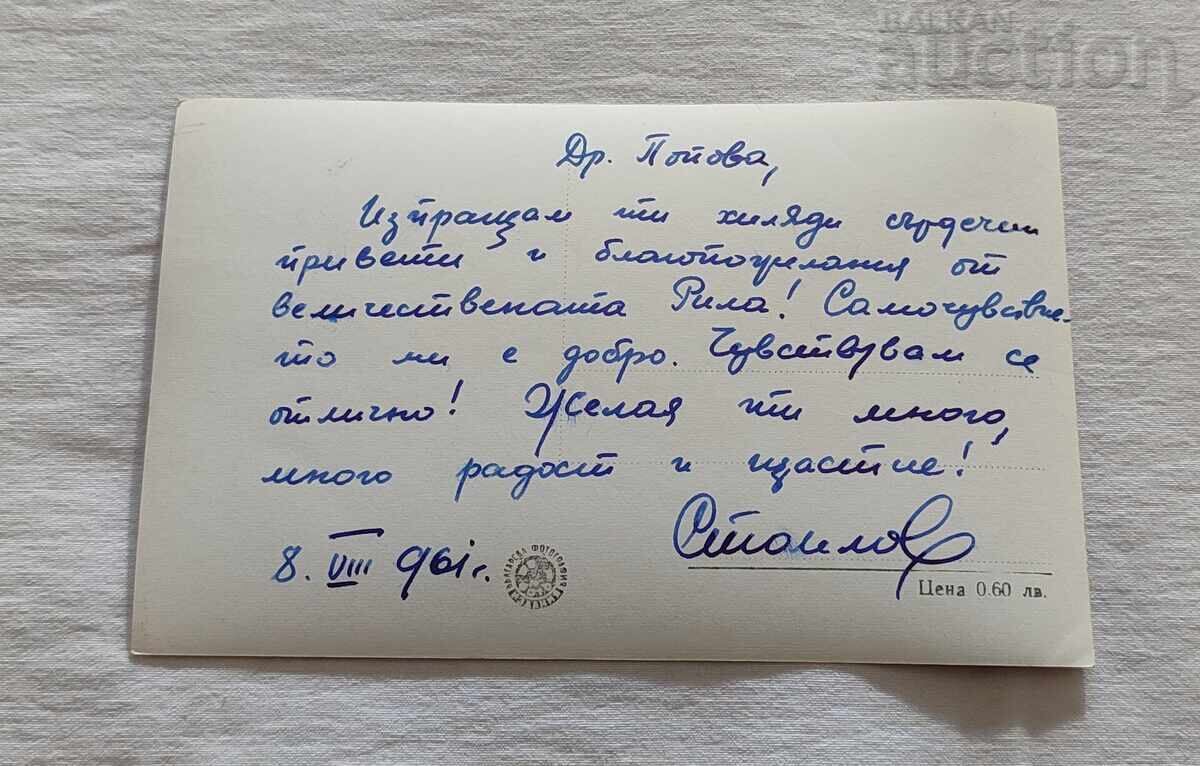 BALKAN
auction
Др. Попова,
Изпращам ти хиляди сърдечни
привети и благопожелания от
величествената Рила! Самочувствие-
то ми е добро. Чувствувам се
отлично! Желая ти много,
много радост и щастие!
Стоилов
8. VIII 961 г.
БЪЛГАРСКА ФОТОГРАФИЯ
Цена 0.60 лв.